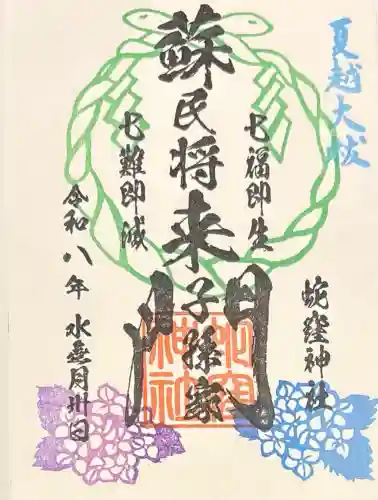 夏越大祓
蛇窪神社
七福即生
蘇民将来子孫家門
七難即滅
令和八年 水無月卅日
蛇窪神社